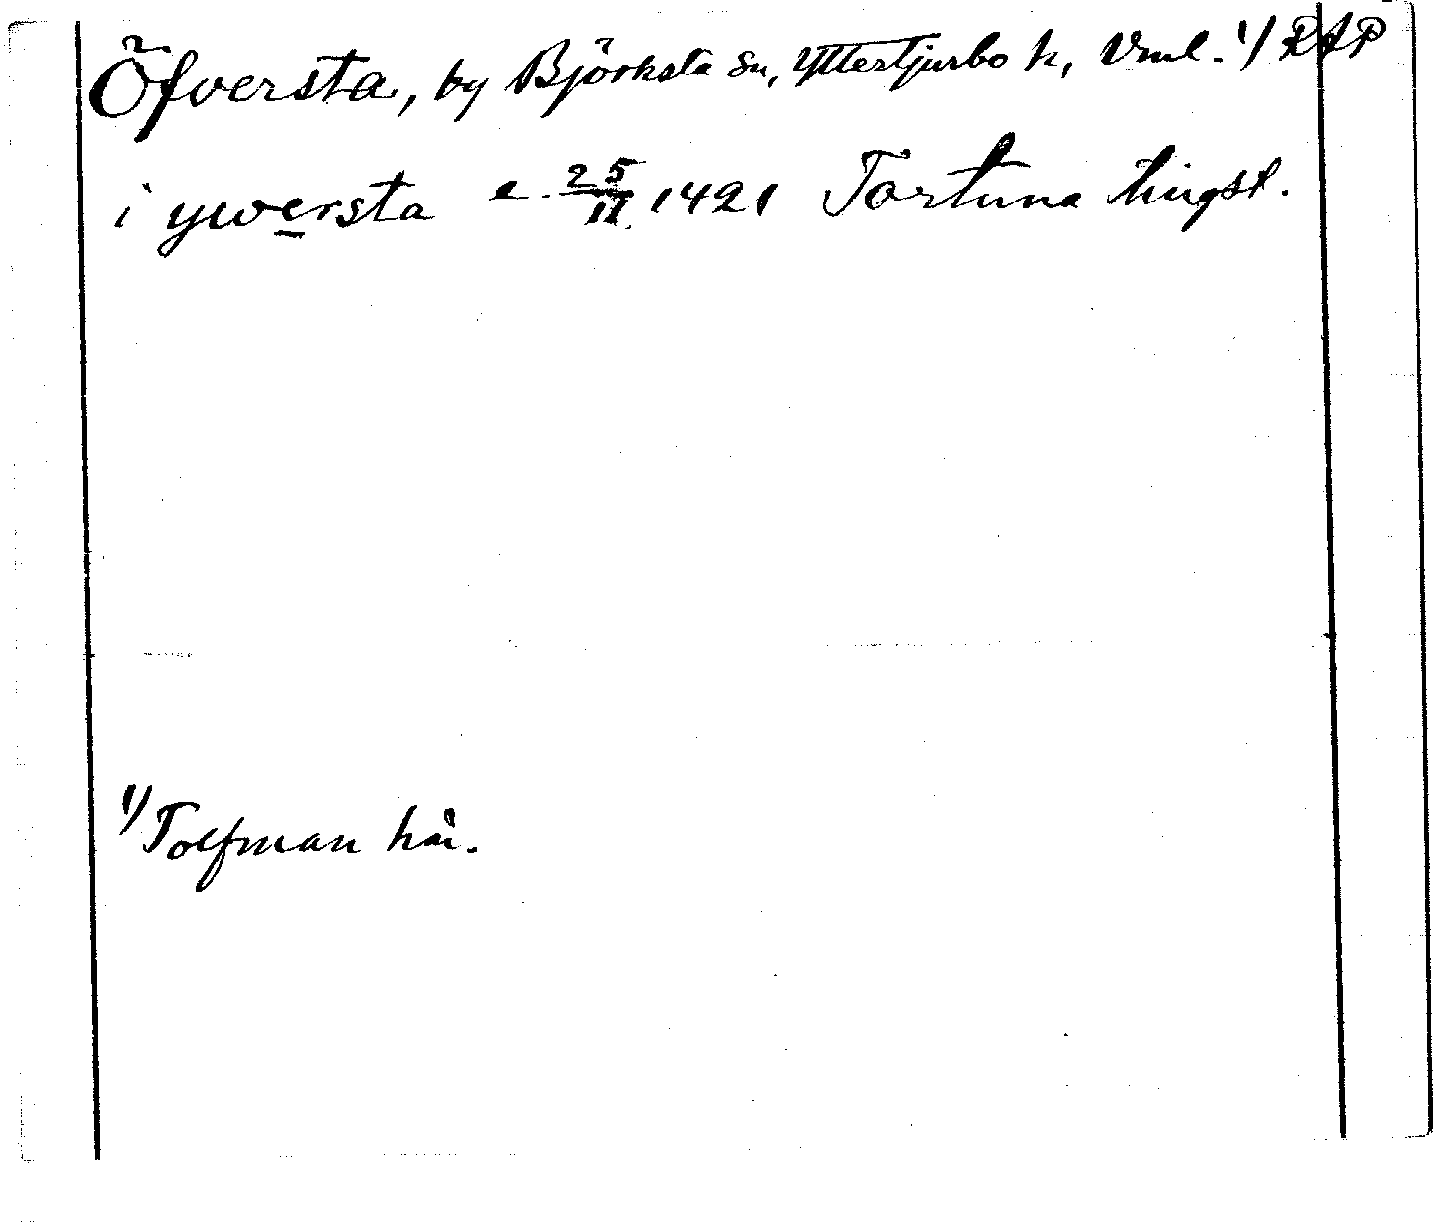 Öfversta, by Björksta sn, Yttertjurbo h, Vml. 1) RAP
i ywersta e. 25/11 1421 Tortuna tingst.
1) Tolfman här.